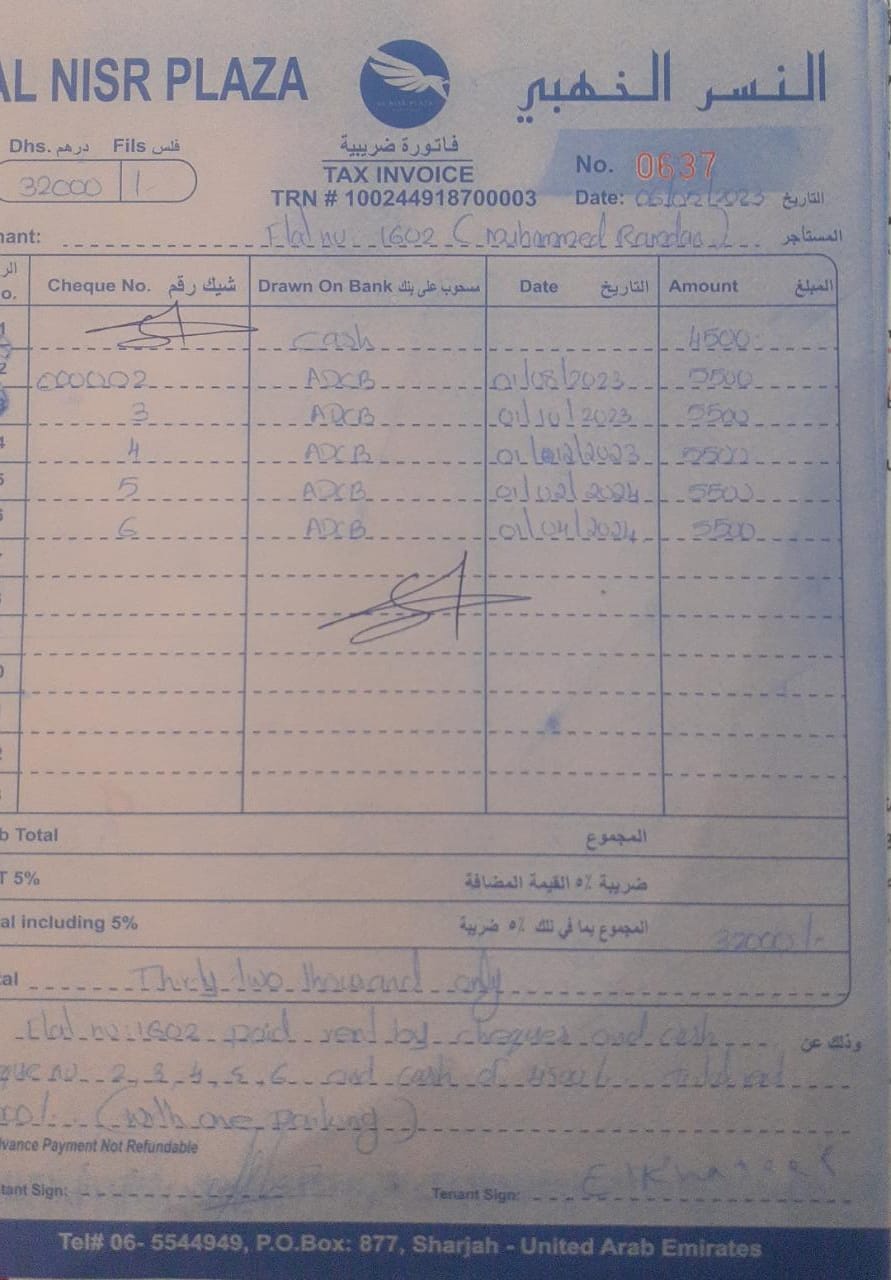 AL NISR PLAZA
النسر الذهبي
Dhs. درهم Fils فلس
32000 /-
فاتورة ضريبية
TAX INVOICE
TRN # 100244918700003
No. 0637
Date: 06/02/2023 التاريخ
nant: Flat no. 1602 (Muhammed Ramdan) المستأجر
o. Cheque No. شيك رقم Drawn On Bank مسحوب على بنك Date التاريخ Amount المبلغ
1 cash 4500
2 000002 ADCB 01/08/2023 5500
3 3 ADCB 01/10/2023 5500
4 4 ADCB 01/12/2023 5500
5 5 ADCB 01/02/2024 5500
6 6 ADCB 01/04/2024 5500
b Total المجموع
T 5% ضريبة ٥٪ القيمة المضافة
al including 5% المجموع بما في ذلك ٥٪ ضريبة 32000/-
al Thirty two thousand only
Flat no: 1602 paid rent by cheques and cash وذلك عن
que no 2, 3, 4, 5, 6 and cash of 4500/-
(with one parking)
dvance Payment Not Refundable
tant Sign: Tenant Sign:
Tel# 06- 5544949, P.O.Box: 877, Sharjah - United Arab Emirates